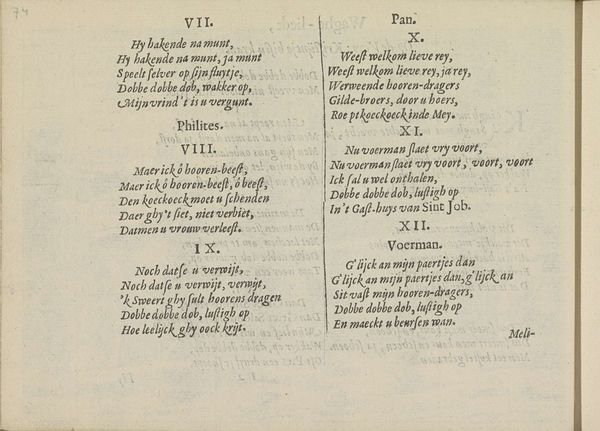 74
VII.
Hy hakende na munt,
Hy hakende na munt, ja munt
Speelt selver op sijn fluytje,
Dobbe dobbe dob, wakker op,
Mijn vrind 't is u vergunt.
Philites.
VIII.
Maer ick ô hooren-beest,
Maer ick ô hooren-beest, ô beest,
Den koeckoeck moet u schenden
Daer ghy't siet, niet verbiet,
Datmen u vrouw verleest.
IX.
Noch datse u verwijt,
Noch datse u verwijt, verwijt,
'k Sweert ghy sult hoorens dragen
Dobbe dobbe dob, lustigh op
Hoe leelijck ghy oock krijt.
Pan.
X.
Weest welkom lieve rey,
Weest welkom lieve rey, ja rey,
Verweende hooren-dragers
Gilde-broers, door u hoers,
Roept koeckoeck in de Mey.
XI.
Nu voerman slaet vry voort,
Nu voerman slaet vry voort, voort, voort
Ick sal u wel onthalen,
Dobbe dobbe dob, lustigh op
In't Gast-huys van Sint Job.
XII.
Voerman.
G'lijck an mijn paertjes dan
G'lijck an mijn paertjes dan, g'lijck an
Sit vast mijn hooren-dragers,
Dobbe dobbe dob, lustigh op
En maeckt u beursen wan.
Meli-